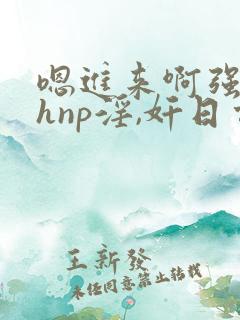 嗯进来啊强
hnp淫,奸日
王新發
未经同意禁止转载